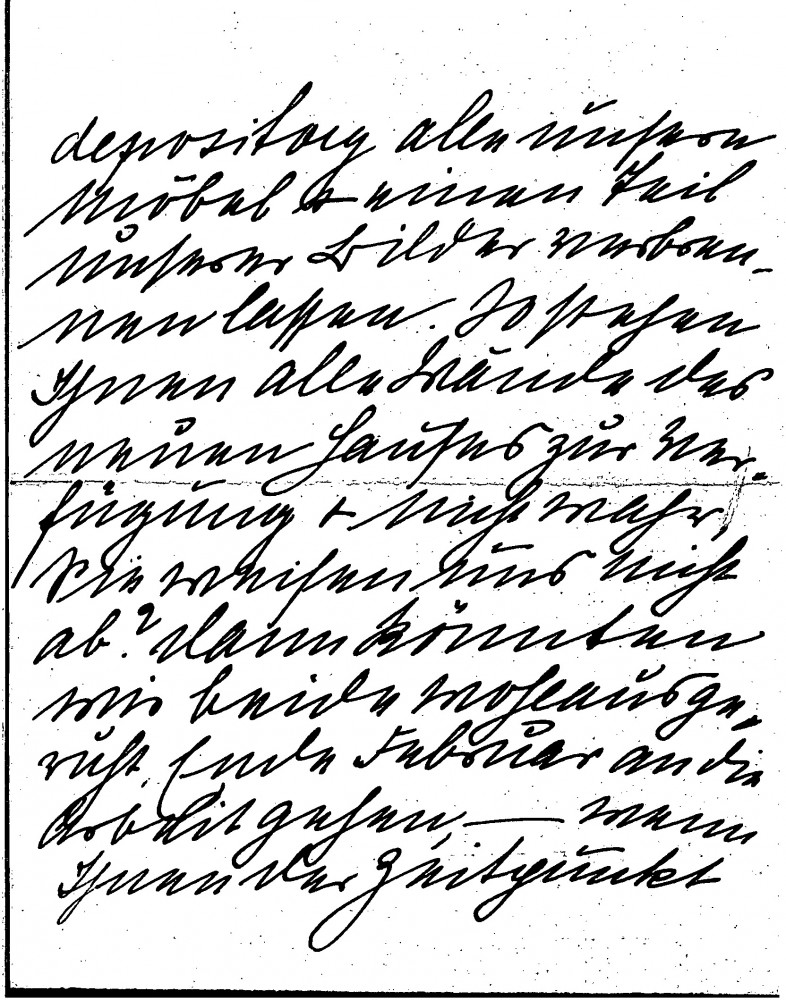 depository alle unsere
Möbel & einen Teil
unserer Bilder verbren-
nen lassen. So stehen
Ihnen alle Wände des
neuen Hauses zur Ver-
fügung & nicht wahr,
Sie weisen uns nicht
ab? Dann könnten
wir beide wohlausge-
ruht Ende Februar an die
Arbeit gehen, — wenn
Ihnen der Zeitpunkt